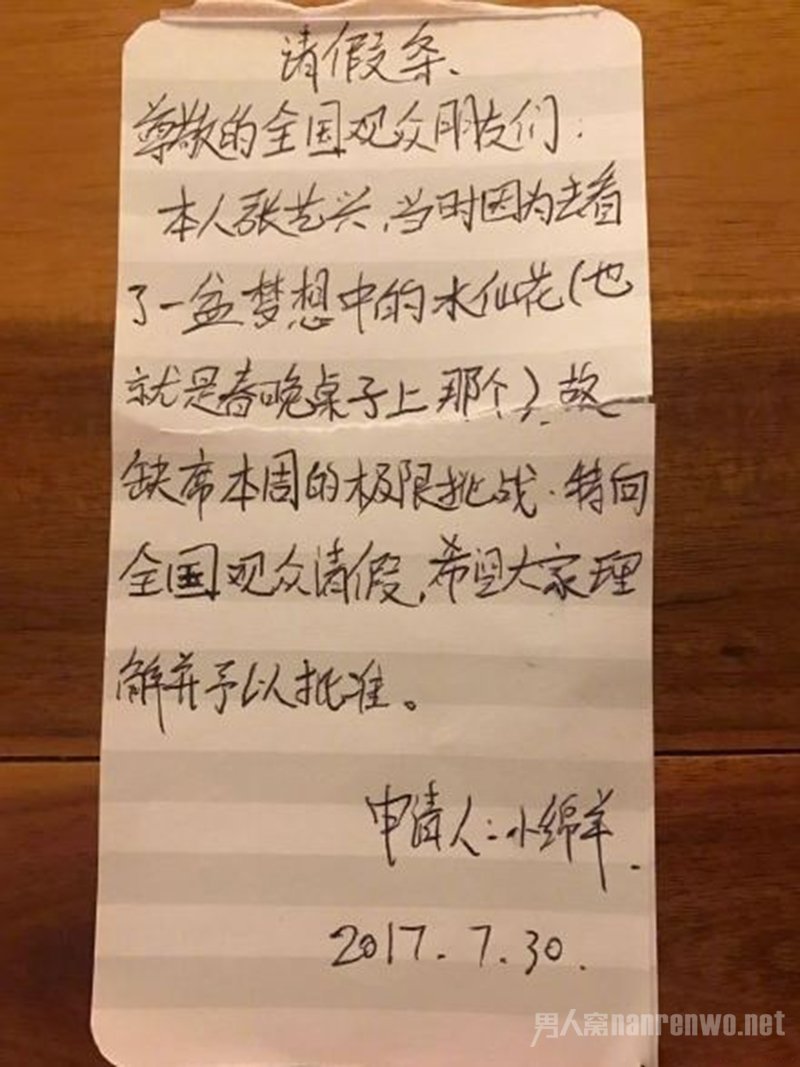 请假条、
尊敬的全国观众朋友们：
本人张艺兴，当时因为去看
了一盆梦想中的水仙花（也
就是春晚桌子上那个），故
缺席本周的极限挑战.特向
全国观众请假，希望大家理
解并予以批准。
申请人：小绵羊.
2017.7.30.
男人窝nanrenwo.net